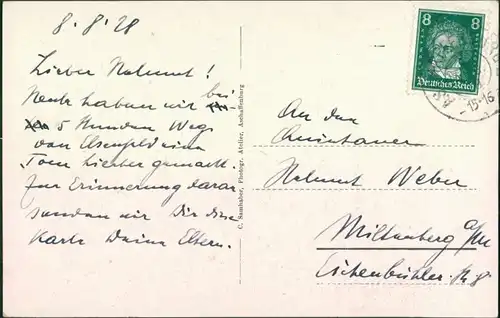 8./8./28
Lieber Helmut!
Heute haben wir bei
5 Stunden Weg
von Elsenfeld eine
Tour hierher gemacht.
Zur Erinnerung daran
senden wir Dir diese
Karte Deine Eltern.
C. Samhaber, Photogr. Atelier, Aschaffenburg
8 8
Deutsches Reich
15-16
An den
Quintaner
Helmut Weber
Miltenberg a/M
Eichenbühler